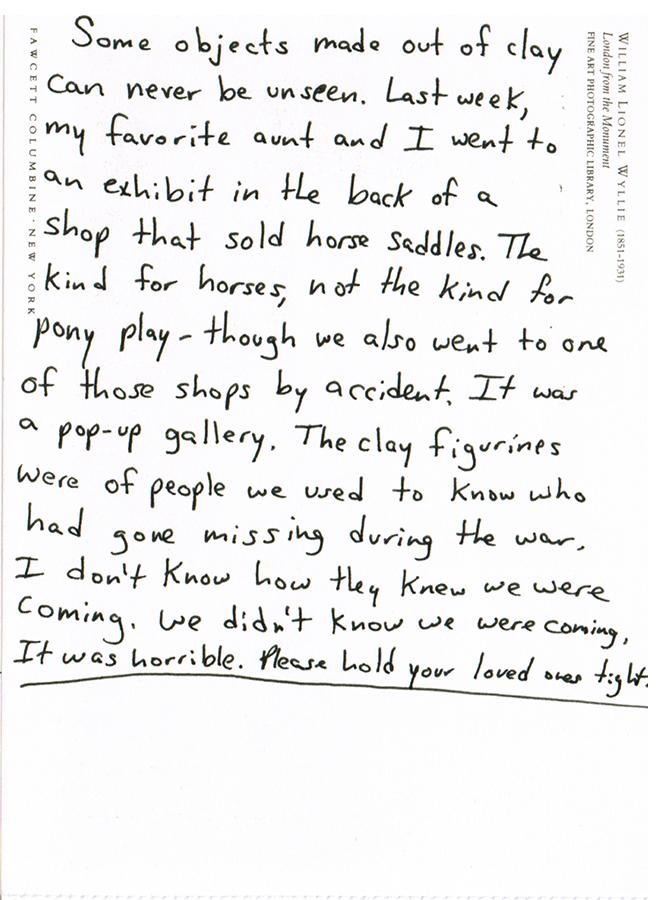 Some objects made out of clay
can never be unseen. Last week,
my favorite aunt and I went to
an exhibit in the back of a
shop that sold horse saddles. The
kind for horses, not the kind for
pony play - though we also went to one
of those shops by accident. It was
a pop-up gallery. The clay figurines
were of people we used to know who
had gone missing during the war.
I don't know how they knew we were
coming. We didn't know we were coming.
It was horrible. Please hold your loved ones tight.
FAWCETT COLUMBINE · NEW YORK
WILLIAM LIONEL WYLLIE (1851-1931)
London from the Monument
FINE ART PHOTOGRAPHIC LIBRARY, LONDON